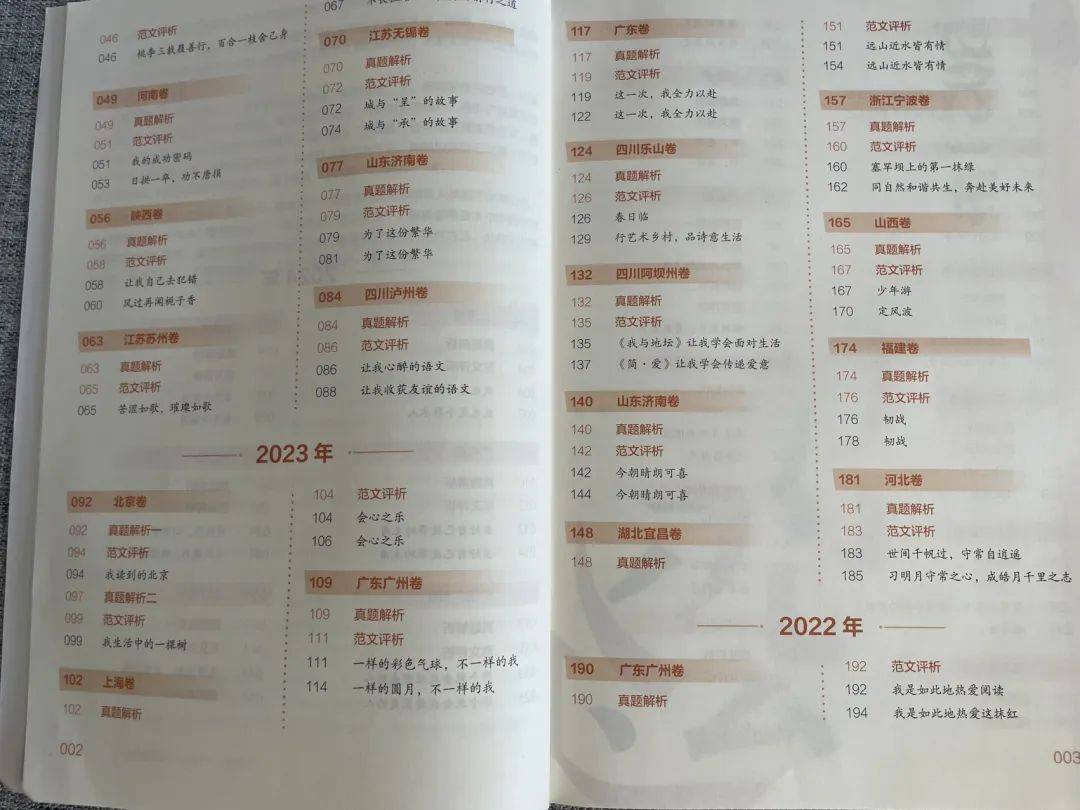 046 范文评析
046 桃李三载蕴善行，百合一枝舍己身
049 河南卷
049 真题解析
051 范文评析
051 我的成功密码
053 日拱一卒，功不唐捐
056 陕西卷
056 真题解析
058 范文评析
058 让我自己去犯错
060 风过再闻栀子香
063 江苏苏州卷
063 真题解析
065 范文评析
065 苦涩如歌，璀璨如歌
067
070 江苏无锡卷
070 真题解析
072 范文评析
072 城与“呈”的故事
074 城与“承”的故事
077 山东济南卷
077 真题解析
079 范文评析
079 为了这份繁华
081 为了这份繁华
084 四川泸州卷
084 真题解析
086 范文评析
086 让我心醉的语文
088 让我收获友谊的语文
2023 年
092 北京卷
092 真题解析一
094 范文评析
094 我读到的北京
097 真题解析二
099 范文评析
099 我生活中的一棵树
102 上海卷
102 真题解析
104 范文评析
104 会心之乐
106 会心之乐
109 广东广州卷
109 真题解析
111 范文评析
111 一样的彩色气球，不一样的我
114 一样的圆月，不一样的我
002
117 广东卷
117 真题解析
119 范文评析
119 这一次，我全力以赴
122 这一次，我全力以赴
124 四川乐山卷
124 真题解析
126 范文评析
126 春日临
129 行艺术乡村，品诗意生活
132 四川阿坝州卷
132 真题解析
135 范文评析
135 《我与地坛》让我学会面对生活
137 《简·爱》让我学会传递爱意
140 山东济南卷
140 真题解析
142 范文评析
142 今朝晴朗可喜
144 今朝晴朗可喜
148 湖北宜昌卷
148 真题解析
151 范文评析
151 远山近水皆有情
154 远山近水皆有情
157 浙江宁波卷
157 真题解析
160 范文评析
160 塞罕坝上的第一抹绿
162 同自然和谐共生，奔赴美好未来
165 山西卷
165 真题解析
167 范文评析
167 少年游
170 定风波
174 福建卷
174 真题解析
176 范文评析
176 韧战
178 韧战
181 河北卷
181 真题解析
183 范文评析
183 世间千帆过，守常自逍遥
185 习明月守常之心，成皓月千里之志
2022 年
190 广东广州卷
190 真题解析
192 范文评析
192 我是如此地热爱阅读
194 我是如此地热爱这抹红
003